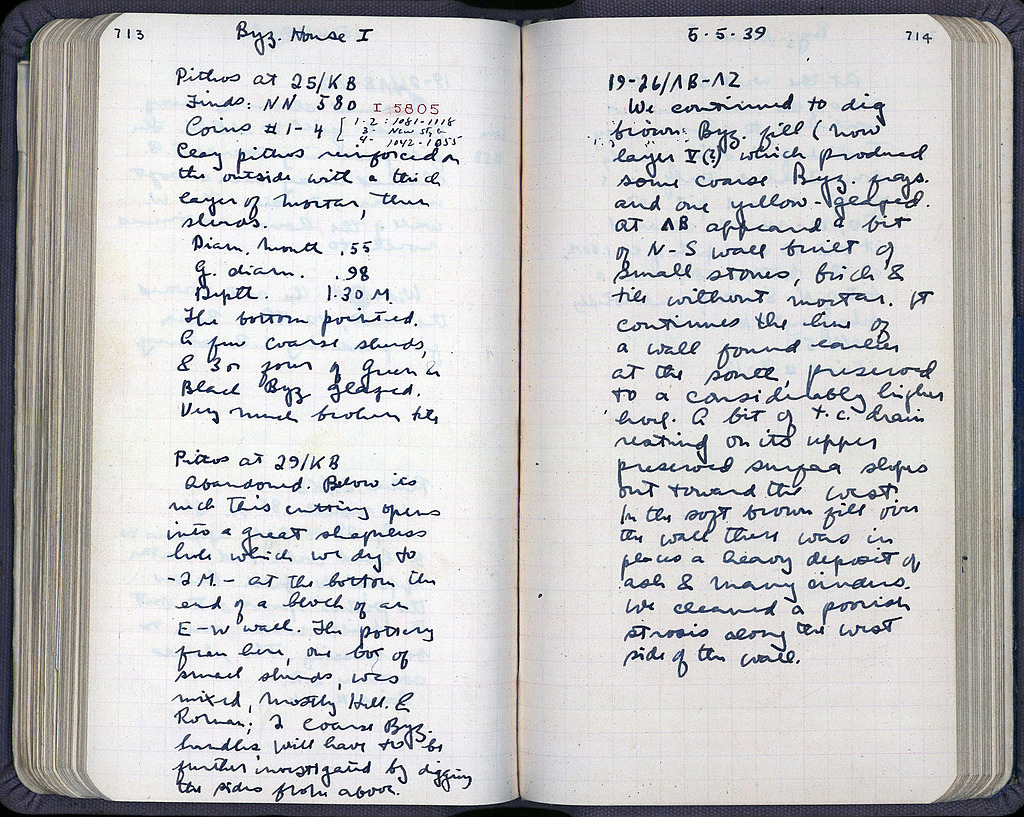 713
Byz. House I
Pithos at 25/KB
Finds: NN 580 I 5805
Coins #1-4 { 1-2: 1081-1118
3- New Style
4- 1042-1055
Clay pithos reinforced on
the outside with a thick
layer of mortar, then
sherds.
Diam. mouth .55
G. diam. .98
Depth. 1.30 M
The bottom pointed.
A few coarse sherds,
& 3 or four of Green &
Black Byz glazed.
Very much broken tile
Pithos at 29/KB
Abandoned. Below its
neck this cutting opens
into a great shapeless
hole which we dig to
-2 M - at the bottom the
end of a block of an
E-W wall. The pottery
from here, one box of
small sherds, was
mixed, mostly Hell. &
Roman; 2 coarse Byz.
handles will have to be
further investigated by digging
the sides from above.
5-5-39
714
19-26/ΛB-ΛZ
We continued to dig
brown Byz. fill (now
layer V(?) which produced
some coarse Byz. frags.
and one yellow-glazed.
At ΛB appeared a bit
of N-S wall built of
small stones, brick &
tile without mortar. It
continues the line of
a wall found earlier
at the south, preserved
to a considerably higher
level. A bit of t.c. drain
resting on its upper
preserved surface slopes
out toward the west.
In the soft brown fill over
the wall there was in
places a heavy deposit of
ash & many cinders.
We cleaned a poorish
strosis along the west
side of the wall.